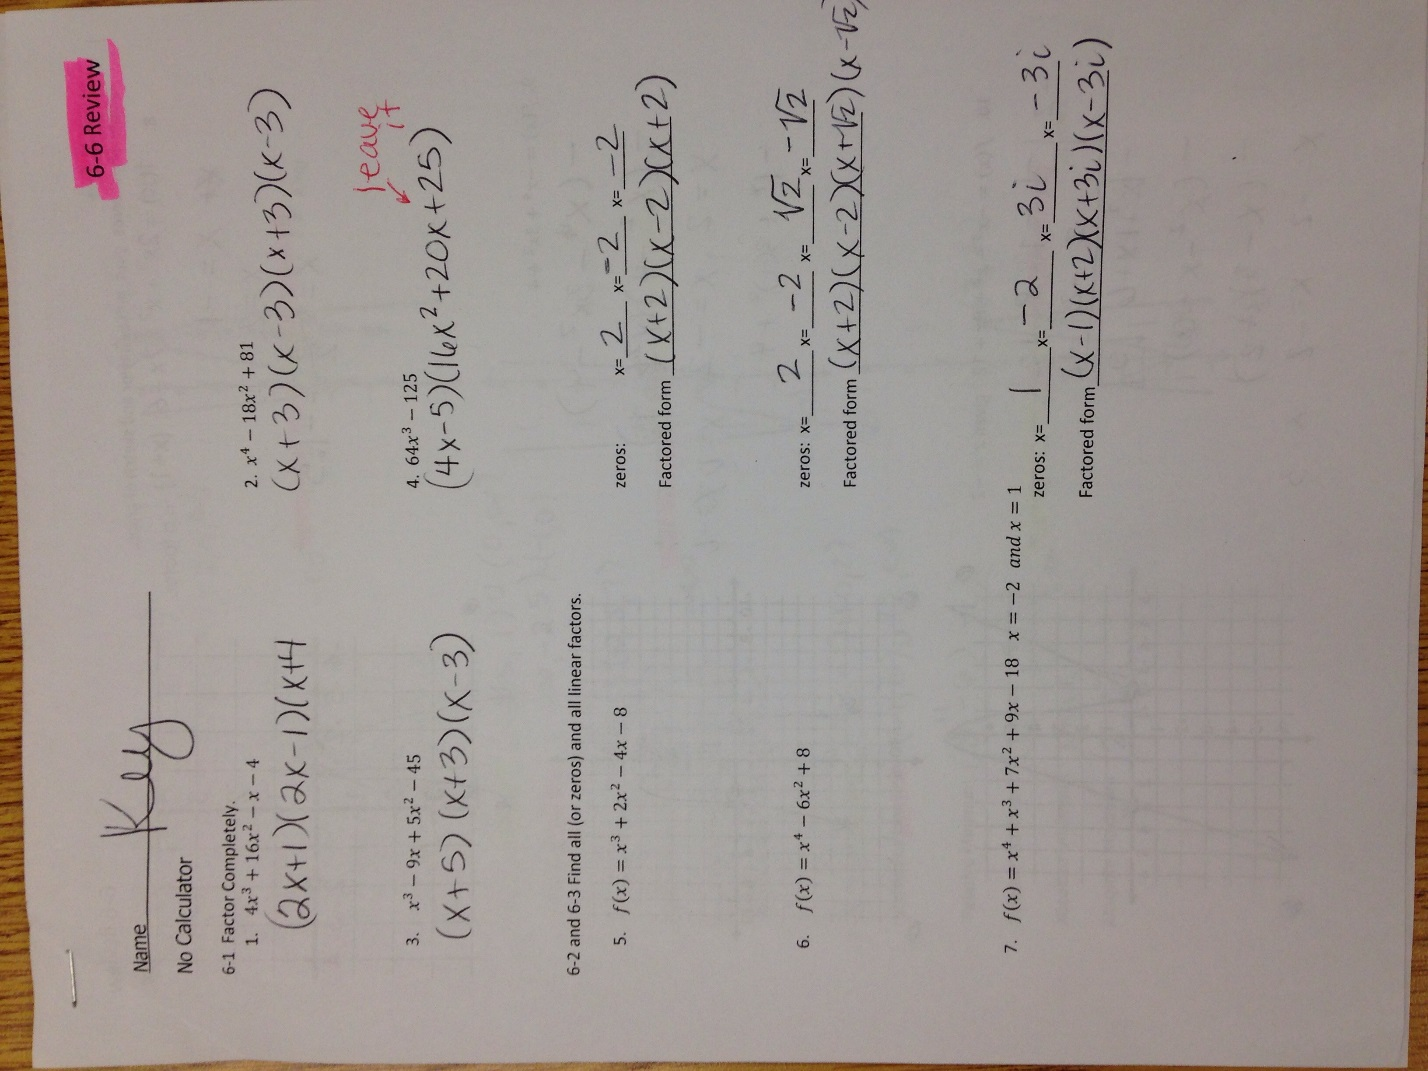 6-6 Review
Name Key
No Calculator
6-1 Factor Completely.
1. 4x³ + 16x² − x − 4
(2x+1)(2x−1)(x+4
2. x⁴ − 18x² + 81
(x+3)(x−3)(x+3)(x−3)
3. x³ − 9x + 5x² − 45
(x+5)(x+3)(x−3)
4. 64x³ − 125
(4x−5)(16x²+20x+25)
leave it
6-2 and 6-3 Find all (or zeros) and all linear factors.
5. f(x) = x³ + 2x² − 4x − 8
zeros: x= 2 x= −2 x= −2
Factored form (x+2)(x−2)(x+2)
6. f(x) = x⁴ − 6x² + 8
zeros: x= 2 x= −2 x= √2 x= −√2
Factored form (x+2)(x−2)(x+√2)(x−√2)
7. f(x) = x⁴ + x³ + 7x² + 9x − 18 x = −2 and x = 1
zeros: x= 1 x= −2 x= 3i x= −3i
Factored form (x−1)(x+2)(x+3i)(x−3i)